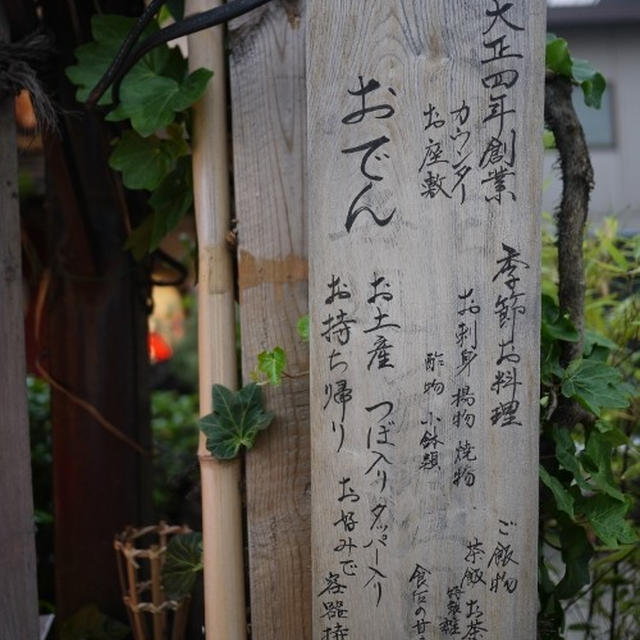 大正四年創業 季節お料理 ご飯物
カウンター お刺身 揚物 焼物 茶飯 お茶
お座敷 酢物 小鉢類
おでん
お土産 つぼ入り タッパー入り
お持ち帰り お好みで